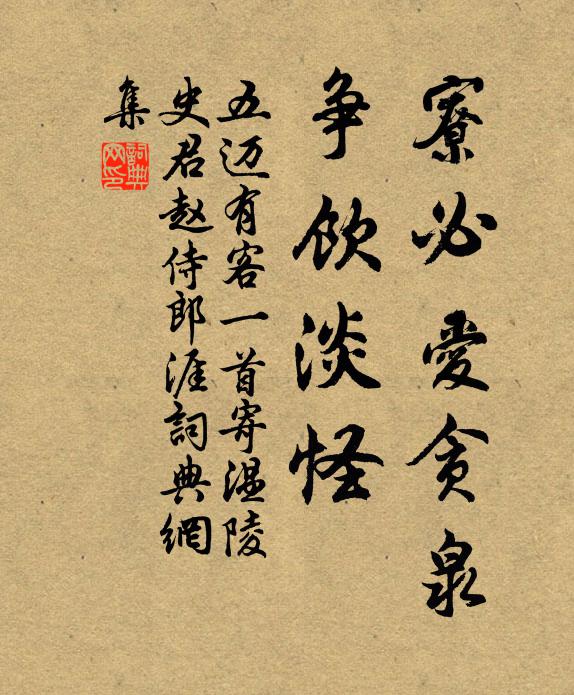 寮必愛贪泉
争饮淡怪
五迈有客一首寄温陵
史君赵侍郎涯詞典網
集
詞典网印